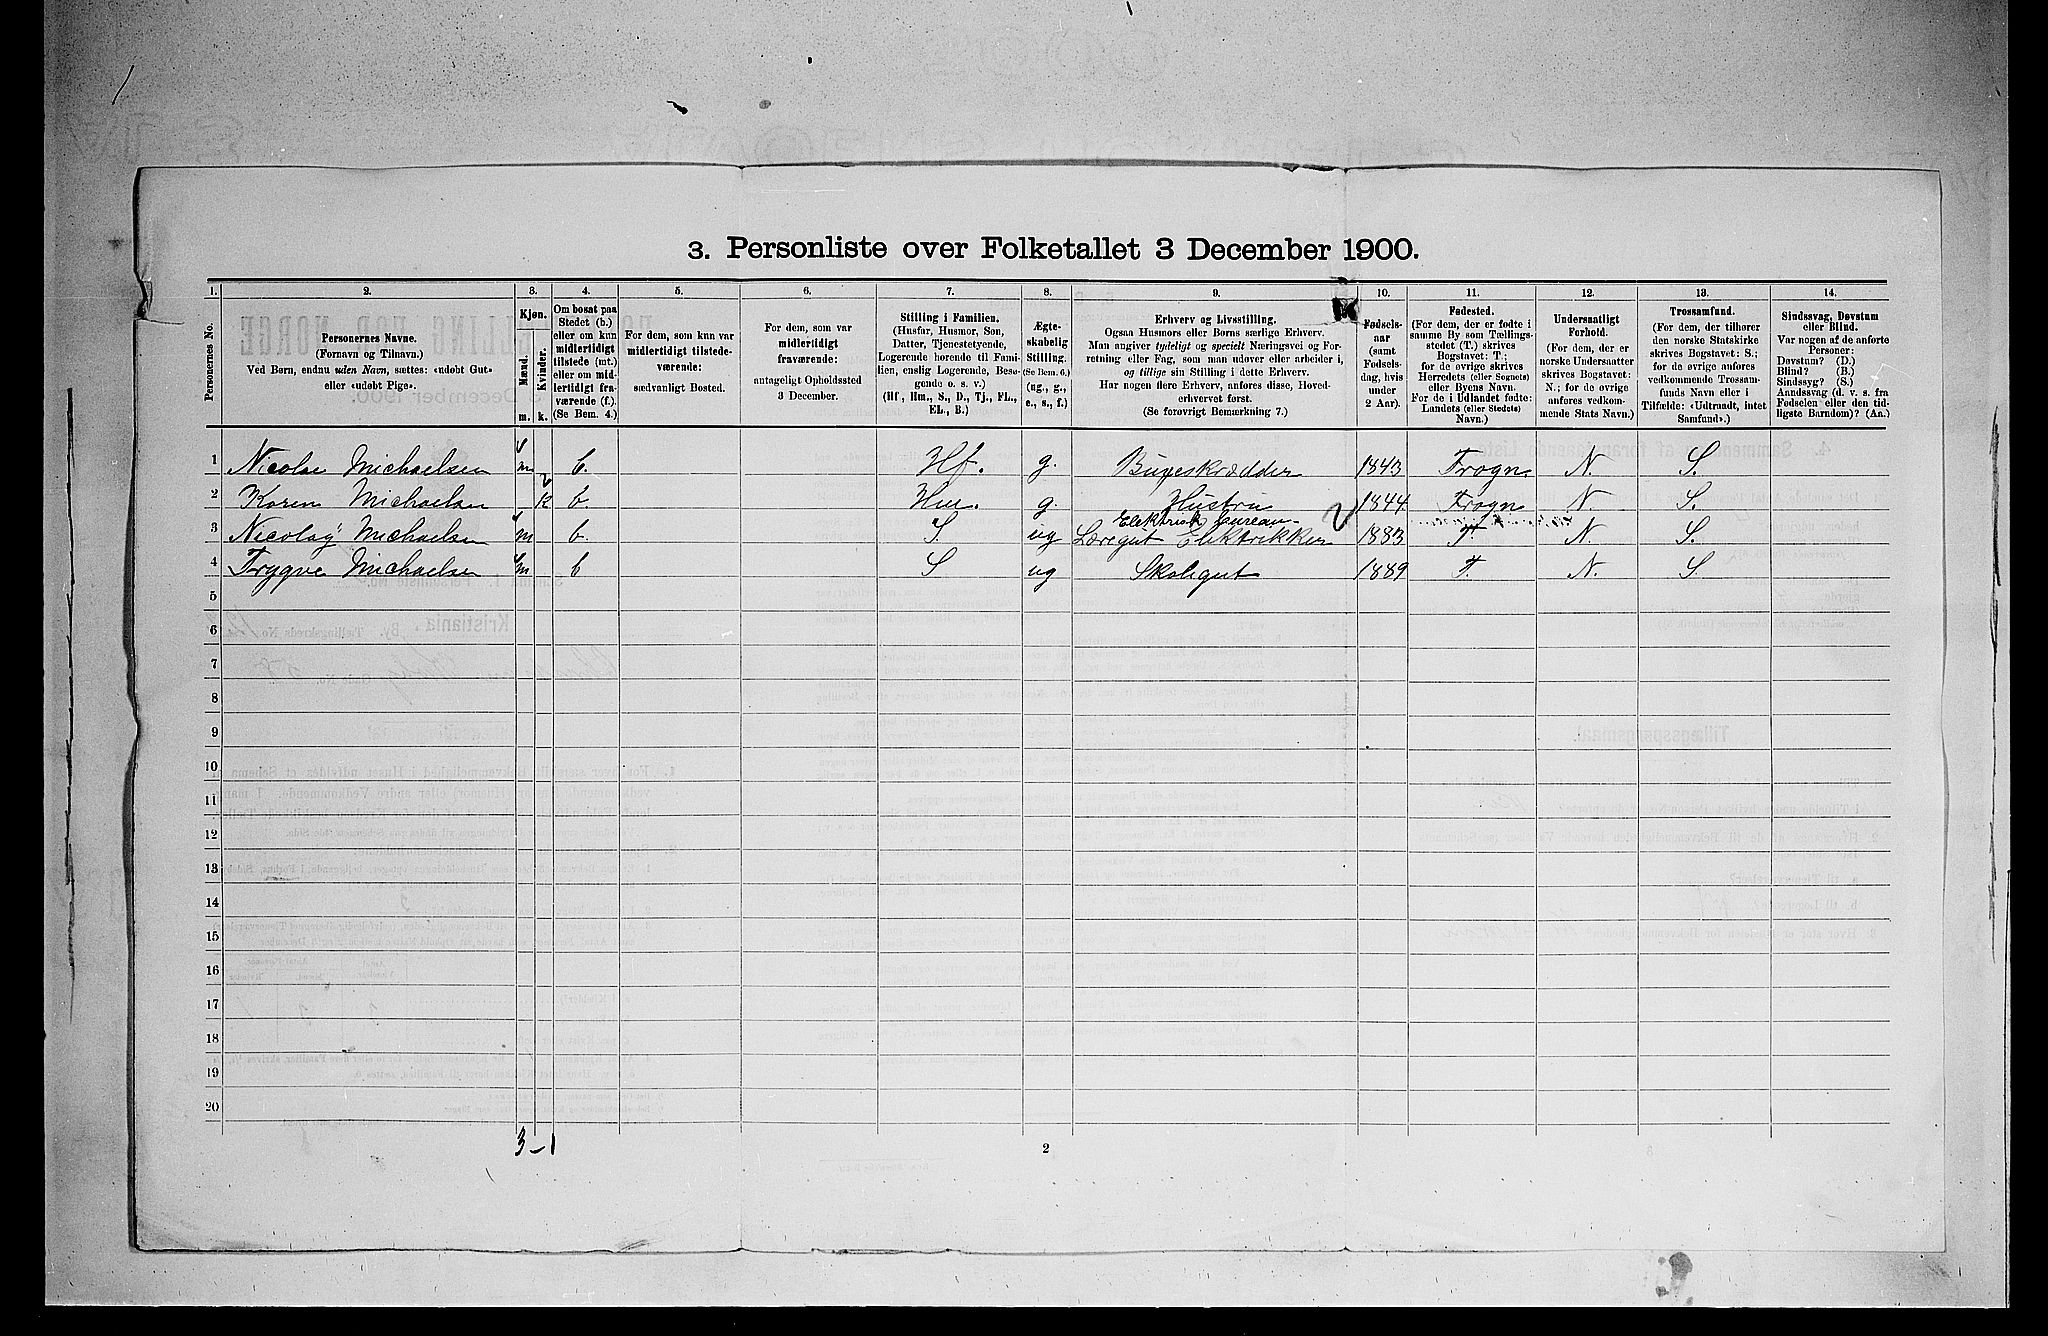 3. Personliste over Folketallet 3 December 1900.
1. 2. 3. 4. 5. 6. 7. 8. 9. 10. 11. 12. 13. 14.
Personernes No.
Personernes Navne.
(Fornavn og Tilnavn.)
Ved Børn, endnu uden Navn, sættes: «udøbt Gut»
eller «udøbt Pige».
Kjøn.
Mænd.
Kvinder.
m. k.
Om bosat paa
Stedet (b.)
eller om kun
midlertidigt
tilstede (mt.)
eller om mid-
lertidigt fra-
værende (f.).
(Se Bem. 4.)
For dem, som kun var
midlertidigt tilstede-
værende:
sædvanligt Bosted.
For dem, som var
midlertidigt
fraværende:
antageligt Opholdssted
3 December.
Stilling i Familien.
(Husfar, Husmor, Søn,
Datter, Tjenestetyende,
Logerende hørende til Fami-
lien, enslig Logerende, Besø-
gende o. s. v.)
(Hf., Hm., S., D., Tj., FL.,
EL., B.)
Ægte-
skabelig
Stilling.
(Se Bem. 6.)
(ug., g.,
e., s., f.)
Erhverv og Livsstilling.
Ogsaa Husmors eller Børns særlige Erhverv.
Man angiver tydeligt og specielt Næringsvei og For-
retning eller Fag, som man udøver eller arbeider i,
og tillige sin Stilling i dette Erhverv.
Har nogen flere Erhverv, anføres disse, Hoved-
erhvervet først.
(Se forøvrigt Bemærkning 7.)
Fødsels-
aar
(samt
Fødsels-
dag, hvis
under
2 Aar).
Fødested.
(For dem, der er fødte i
samme By som Tællings-
stedet (T.) skrives
Bogstavet: T.;
for de øvrige skrives
Herredets (eller Sognets)
eller Byens Navn.
For de i Udlandet fødte:
Landets (eller Stedets)
Navn.)
Undersaatligt
Forhold.
(For dem, der er
norske Undersaatter
skrives Bogstavet:
N.; for de øvrige
anføres vedkom-
mende Stats Navn.)
Trossamfund.
(For dem, der tilhører
den norske Statskirke
skrives Bogstavet: S.;
for de øvrige anføres
vedkommende Trossam-
funds Navn eller i
Tilfælde: «Udtraadt, intet
Samfund».)
Sindssvag, Døvstum
eller Blind.
Var nogen af de anførte
Personer:
Døvstum? (D.)
Blind? (B.)
Sindssyg? (S.)
Aandssvag (d. v. s. fra
Fødselen eller den tid-
ligste Barndom)? (Aa.)
1 Nicolae Michaelsen m b. Hf. g. Bugseskrædder 1843 Frogn N. S.
2 Karen Michaelsen k b. Hm. g. Hustru 1844 Frogn N. S.
Elektrisk bureau
3 Nicolay Michaelsen m b. S ug Læregut Elektrikker 1883 T. N. S.
4 Trygve Michaelsen m b S ug Skolegut 1889 T. N. S.
5
6
7
8
9
10
11
12
13
14
15
16
17
18
19
20
3-1
2